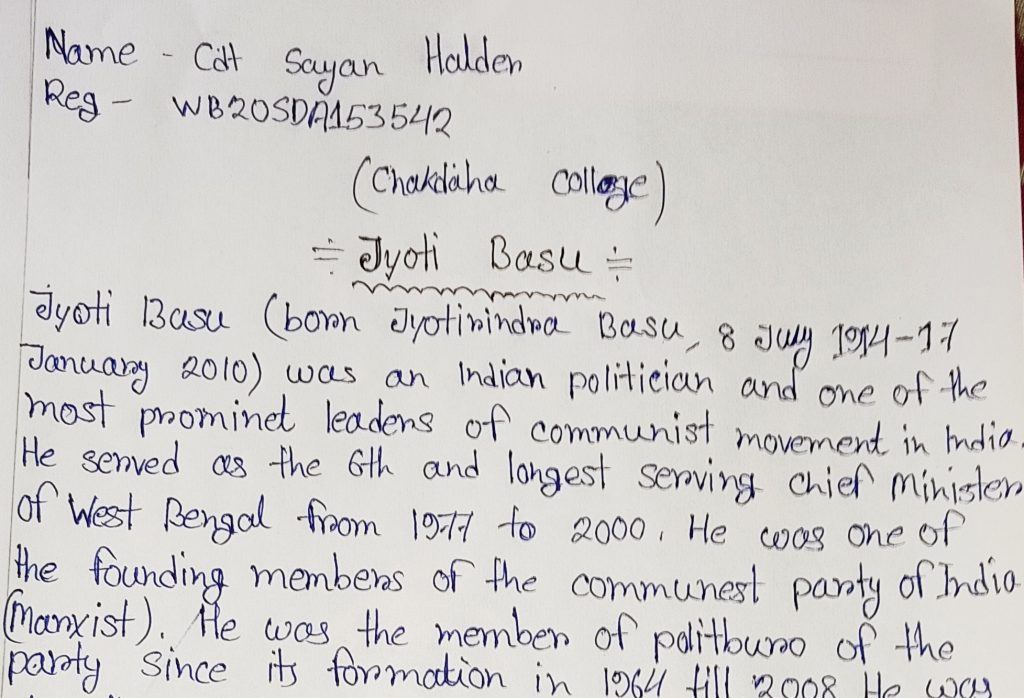 Name - Cdt Sayan Halder
Reg - WB20SDA153542
(Chakdaha College)
÷ Jyoti Basu ÷
Jyoti Basu (born Jyotirindra Basu, 8 July 1914-17
January 2010) was an Indian politician and one of the
most prominet leaders of communist movement in India.
He served as the 6th and longest serving chief Minister
of West Bengal from 1977 to 2000. He was one of
the founding members of the communest party of India
(Marxist). He was the member of politburo of the
party since its formation in 1964 till 2008 He was